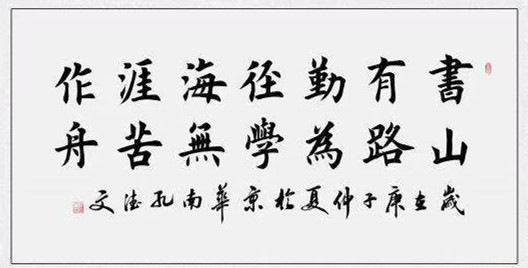 書山
有路
勤為
径學
海無
涯苦
作舟
歲在庚子仲夏於京華南孔德文